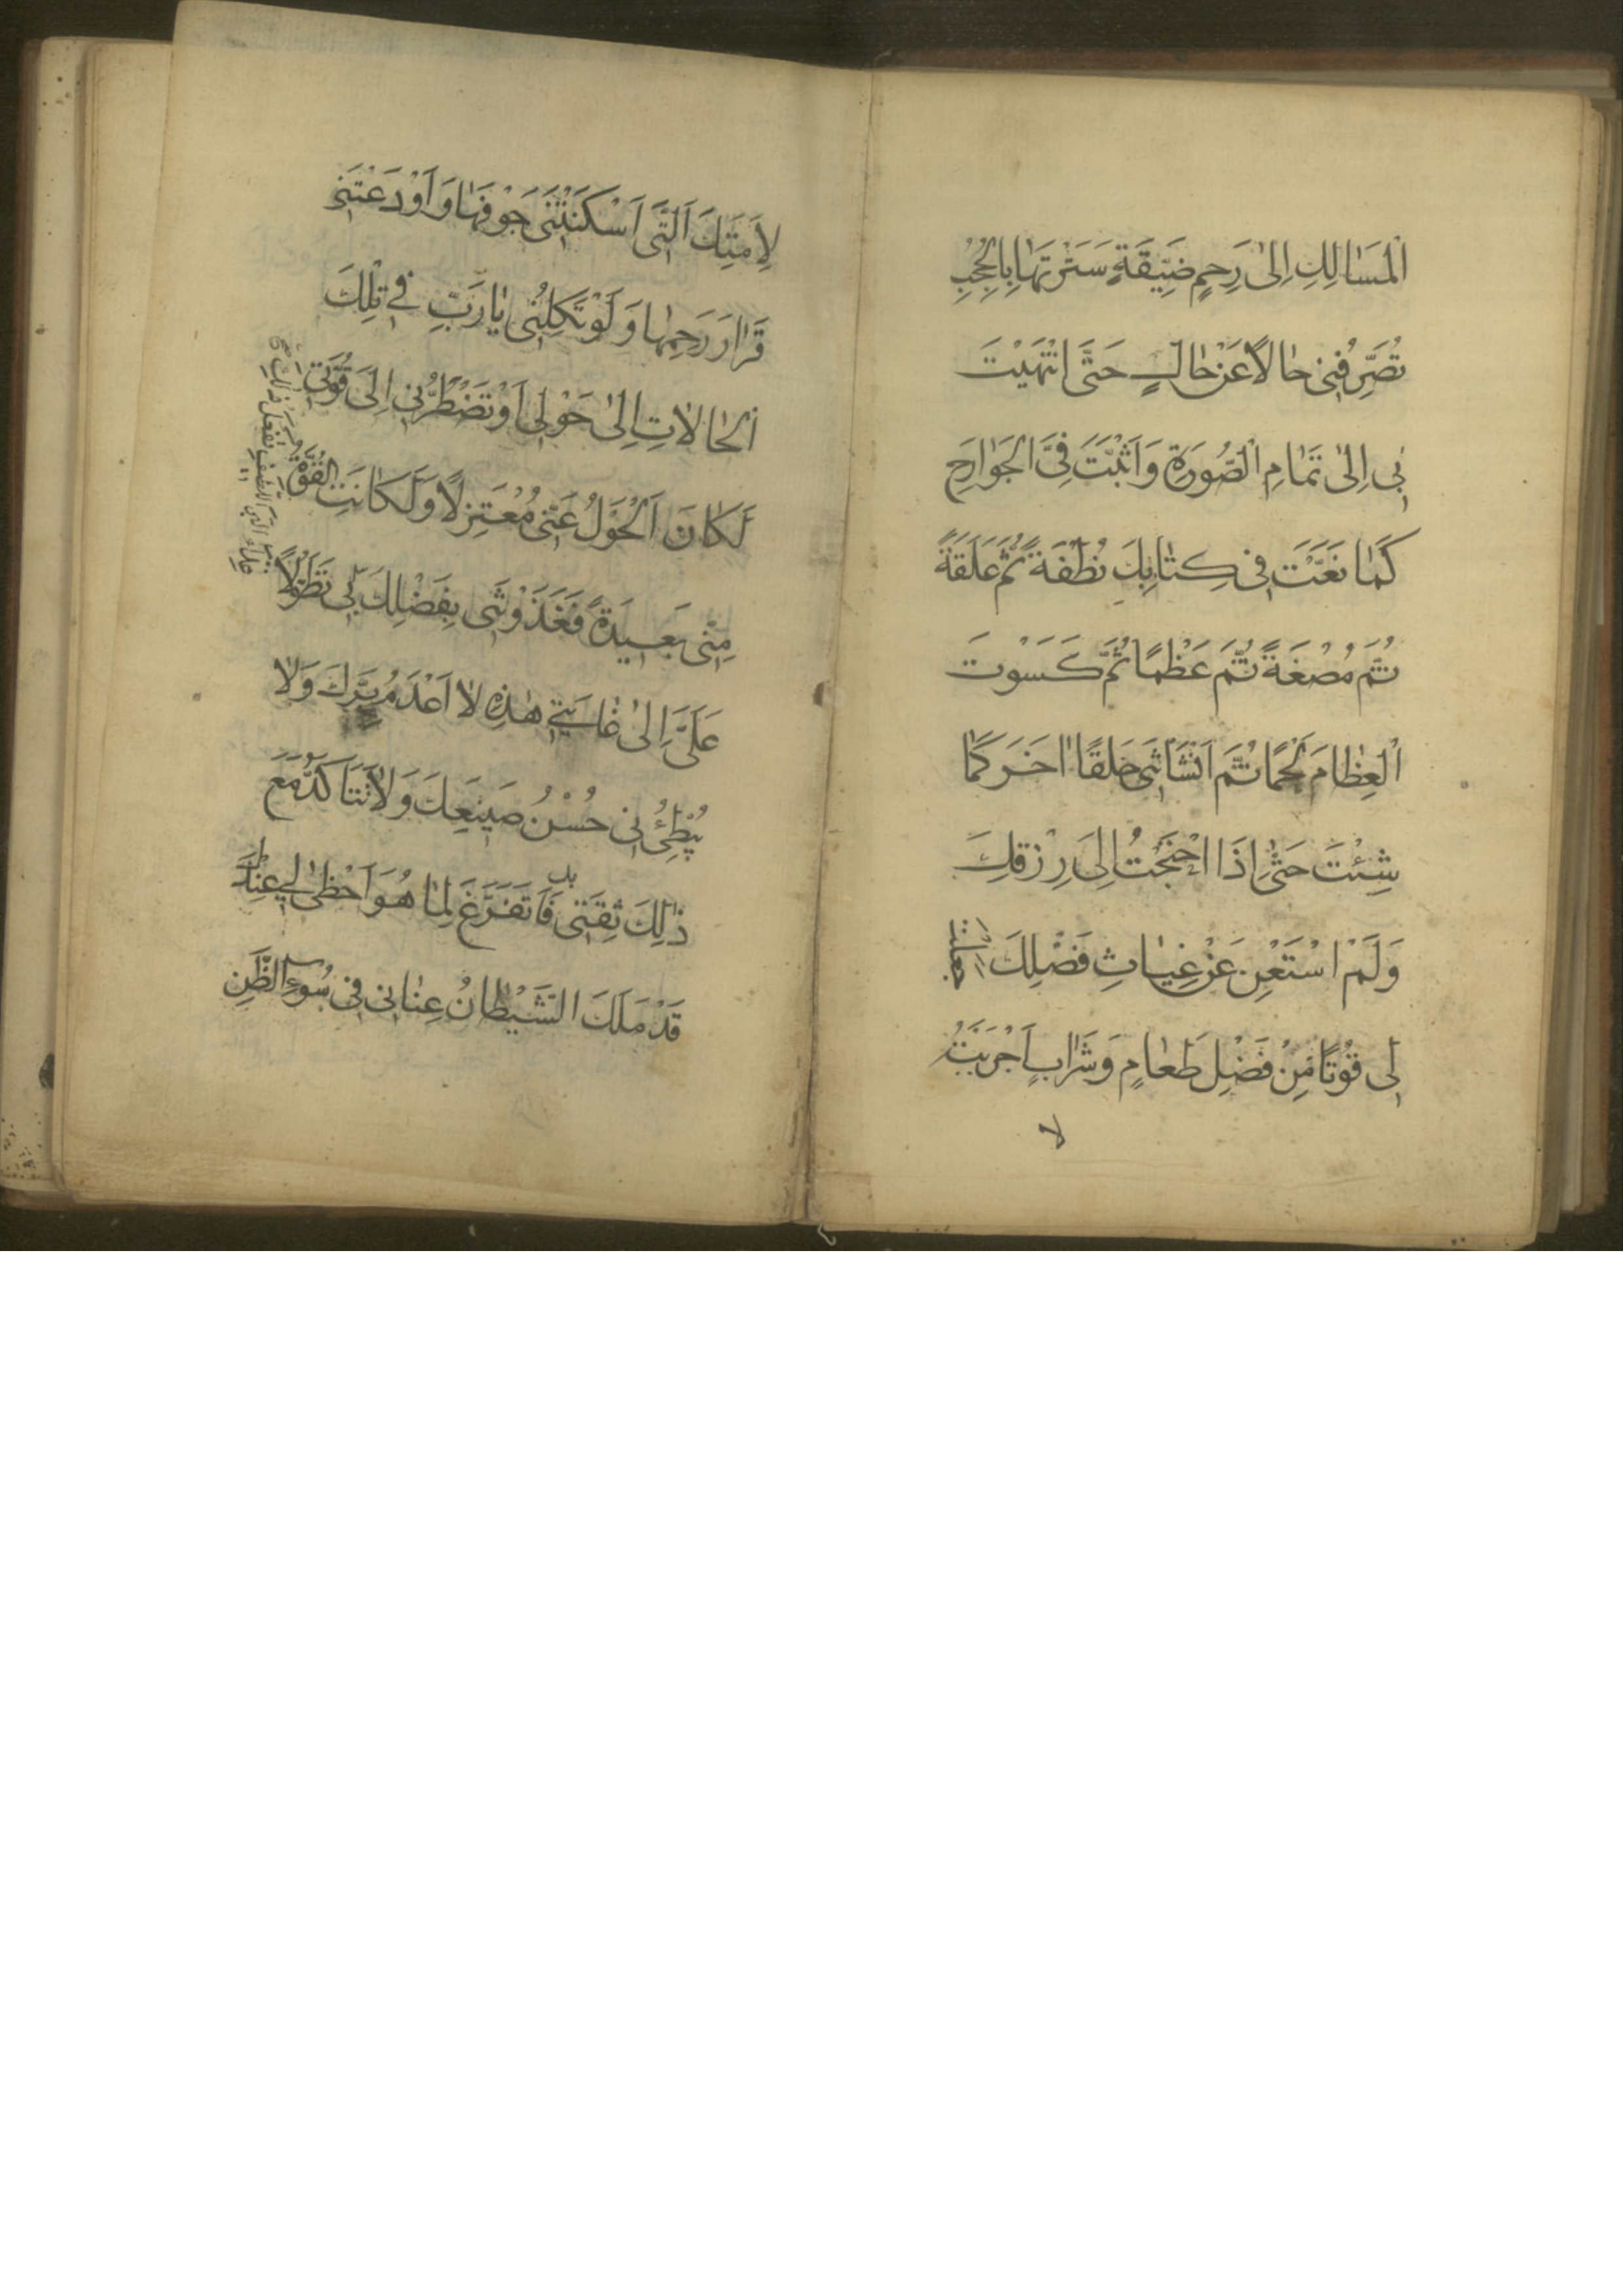 اْلمَسَالِكِ اِلىٰ رَحِمٍ ضَيِّقَةٍ سَتَرْتَهٰا بِالْحُجُبِ
تُصَرِّفُنِى حٰالاً عَنْ حٰالٍ حَتَّى انْتَهَيْتَ
بِى اِلىٰ تَمٰامِ الْصُّورَةِ وَاَثْبَتَّ فِىَّ الْجَوٰارِحَ
كَمٰا نَعَتَّ فِى كِتٰابِكَ نُطْفَةً ثُمَّ عَلَقَةً
ثُمَّ مُضْغَةً ثُمَّ عَظْمًا ثُمَّ كَسَوْتَ
الْعِظٰامَ لَحْمًا ثُمَّ اَنْشَاْتَنِى خَلْقًا اٰخَرَ كَمٰا
شِئْتَ حَتّىٰ اِذَا احْتَجْتُ اِلىَ رِزْقِكَ
وَلَمْ اسْتَغْنِ عَنْ غِيٰاثِ فَضْلِكَ جعلت
لِى قُوْتًا مِنْ فَضْلِ طَعٰامٍ وَشَرٰابٍ اَجْرَيْتَهُ
لا
لِاَمَتِكَ اَلَّتَى اَسْكَنْتَنَى جَوْفَهٰا وَاَوْدَعْتَنِى
قَرٰارَ رَحِمِهٰا وَلَوْ تَكِلْنُِى يٰا رَبِّ فِي تِلْكَ
الْحٰالاٰتِ اِلىٰ حَوْلِى اَوْ تَضْطَرُّنِى اِلىَ قُوَّتِي
لَكٰانَ اَلْحَوْلُ عَنِّى مُعْتَزِلاً وَلَكٰانَتِ الْقُوَّةُ
مِنِّى بَعِيدَةً فَغَذَوْتَنِى بِفَضْلِكَ بِى تَطَوُّلاً
عَلَىَّ اِلىٰ غٰايَتِي هٰذِهِ لاٰ اَعْدَمُ بِرَّكَ وَلاٰ
يُبْطِئُ بِى حُسْنُ صَنِيعِكَ وَلاٰ تَتَاَكَّدُ مَعَ
ذٰلِكَ ثِقَتِى فَاَتَفَرَّغَ لِمٰا هُوَ اَحْظىٰ لِي عِنْدَكَ
قَدْ مَلَكَ الشَّيْطٰانُ عِنٰانِى فِى سُوءِ الظَّنِ